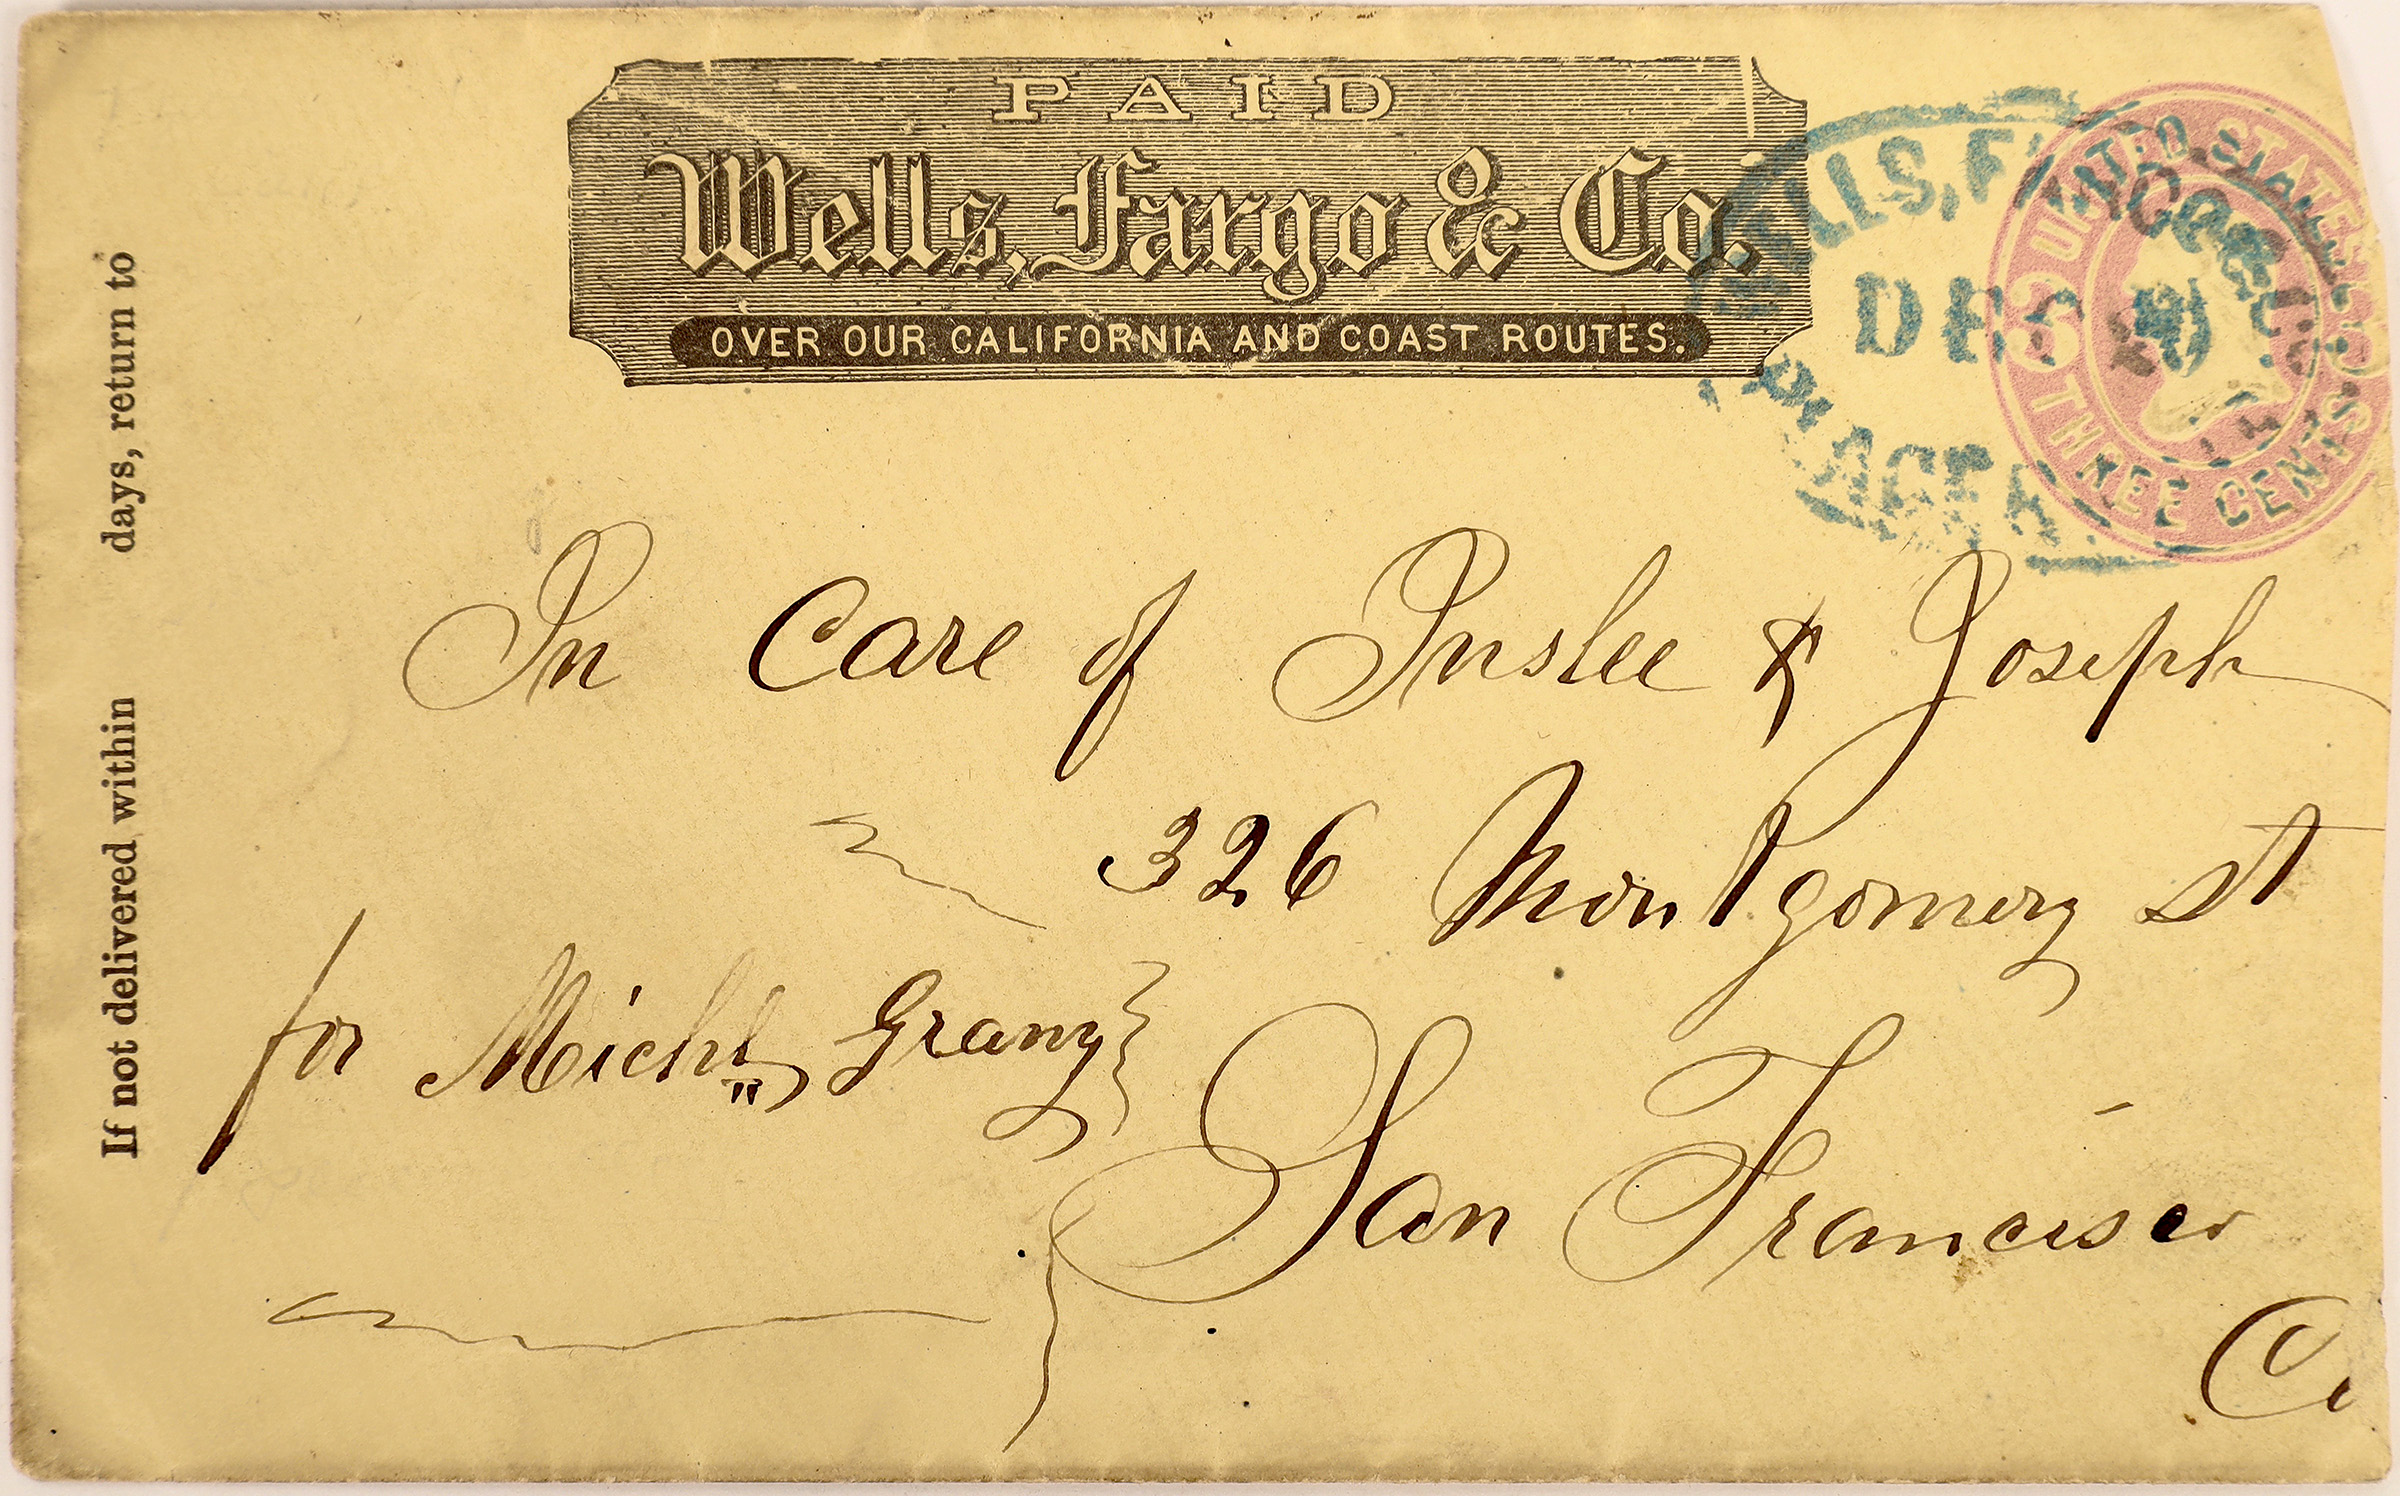 PAID
Wells, Fargo & Co.
OVER OUR CALIFORNIA AND COAST ROUTES.
UNITED STATES
3 3
THREE CENTS
WELLS, F
DEC
If not delivered within days, return to
In Care of Inslee & Joseph
326 Montgomery st
for Michl Grany
San Francisco